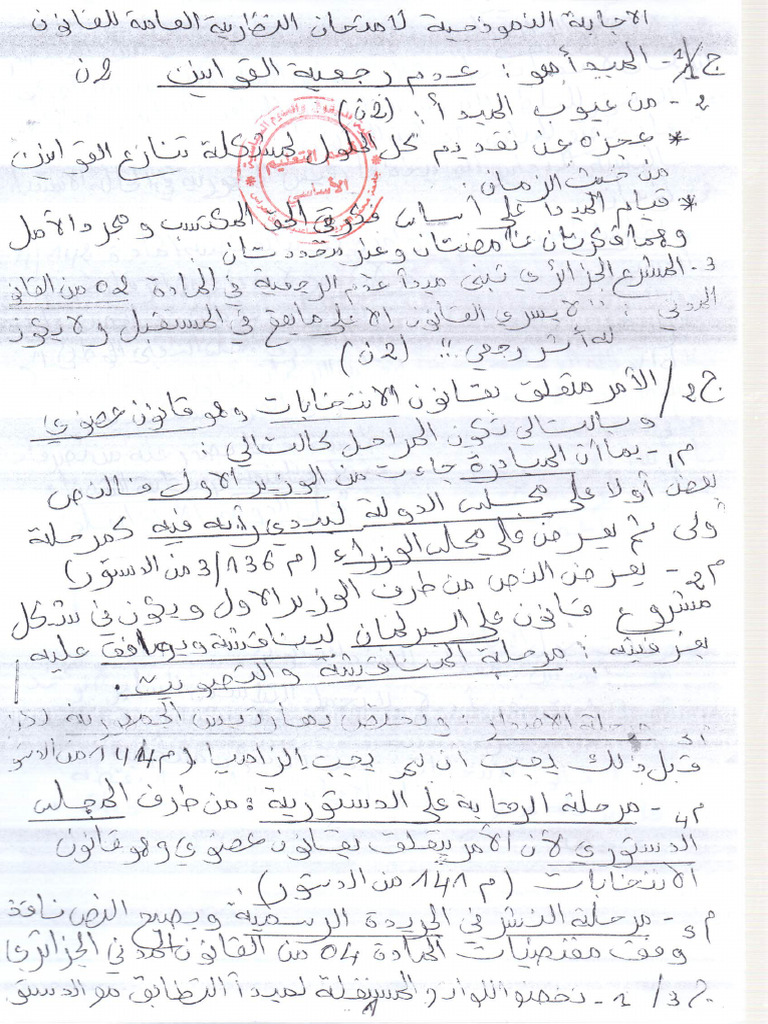 الاجابة النموذجية لامتحان النظرية العامة للقانون
ج1/ 1- المبدأ هو: عدم رجعية القوانين 2ن
2- من عيوب المبدأ: (2ن)
* عجزه عن تقديم كل الحلول لمشكلة تنازع القوانين
من حيث الزمان
* قيام المبدأ على أساس فكرتي الحق المكتسب ومجرد الأمل
وهما فكرتان غامضتان وغير محددتان
3- المشرع الجزائري تبنى مبدأ عدم الرجعية في المادة 02 من القانون
المدني: "لا يسري القانون إلا على ما يقع في المستقبل ولا يكون
له أثر رجعي". (2ن)
ج2/ الأمر متعلق بقانون الانتخابات وهو قانون عضوي
وبالتالي تكون المراحل كالتالي:
م1- بما أن المبادرة جاءت من الوزير الأول فالنص
يعرض أولا على مجلس الدولة ليبدي رأيه فيه كمرحلة
أولى ثم يعرض على مجلس الوزراء (م 136/3 من الدستور)
م2- يعرض النص من طرف الوزير الأول ويكون في شكل
مشروع قانون على البرلمان ليناقشه ويوافق عليه
بغرفتيه: مرحلة المناقشة والتصويت.
مرحلة الاصدار ويختص بها رئيس الجمهورية لكن
قبل ذلك يجب أن تمر (م 144 من
م4- مرحلة الرقابة على الدستورية: من طرف المجلس
الدستوري لأن الأمر يتعلق بقانون عضوي وهو قانون
الانتخابات (م 141 من الدستور)
م5- مرحلة النشر في الجريدة الرسمية ويصبح النص نافذ
وفق مقتضيات المادة 04 من القانون المدني الجزائري
ج3/ 1- تخضع اللوائح المستقلة لمبدأ التطابق مع الدستو
1
قسم التعليم
الأساسي